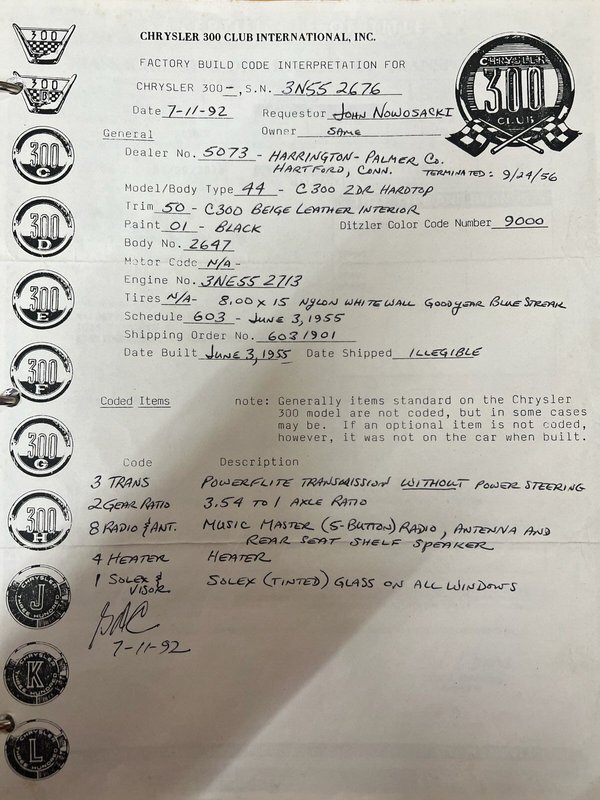 CHRYSLER 300 CLUB INTERNATIONAL, INC.
FACTORY BUILD CODE INTERPRETATION FOR
CHRYSLER 300-, S.N. 3N55 2676
Date 7-11-92 Requestor JOHN NOWOSACKI
Owner SAME
General
Dealer No. 5073 - HARRINGTON-PALMER CO.
HARTFORD, CONN. TERMINATED: 9/24/56
Model/Body Type 44 - C300 2DR HARDTOP
Trim 50 - C300 BEIGE LEATHER INTERIOR
Paint 01 - BLACK Ditzler Color Code Number 9000
Body No. 2647
Motor Code N/A-
Engine No. 3NE55 2713
Tires N/A- 8.00 X 15 NYLON WHITEWALL GOODYEAR BLUE STREAK
Schedule 603 - JUNE 3, 1955
Shipping Order No. 6031901
Date Built JUNE 3, 1955 Date Shipped ILLEGIBLE
Coded Items note: Generally items standard on the Chrysler
300 model are not coded, but in some cases
may be. If an optional item is not coded,
however, it was not on the car when built.
Code Description
3 TRANS POWERFLITE TRANSMISSION WITHOUT POWER STEERING
2 GEAR RATIO 3.54 TO 1 AXLE RATIO
8 RADIO & ANT. MUSIC MASTER (5-BUTTON) RADIO, ANTENNA AND
REAR SEAT SHELF SPEAKER
4 HEATER HEATER
1 SOLEX & VISOR SOLEX (TINTED) GLASS ON ALL WINDOWS
7-11-92
CHRYSLER
300
CLUB
300
300
B
300
C
300
D
300
E
300
F
300
G
300
H
CHRYSLER
J
THREE HUNDRED
CHRYSLER
K
THREE HUNDRED
CHRYSLER
L
THREE HUNDRED